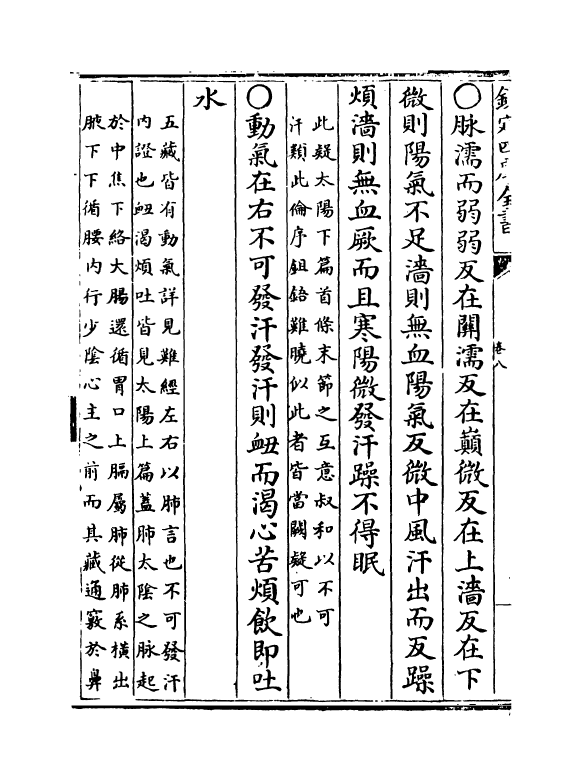 欽定四庫全書
卷八
○脉濡而弱弱反在關濡反在巔微反在上濇反在下
微則陽氣不足濇則無血陽氣反微中風汗出而反躁
煩濇則無血厥而且寒陽微發汗躁不得眠
此疑太陽下篇首條末節之互意叔和以不可
汗類此倫序鉏鋙難曉似此者皆當闕疑可也
○動氣在右不可發汗發汗則衄而渴心苦煩飲即吐
水
五藏皆有動氣詳見難經左右以肺言也不可發汗
内證也衄渴煩吐皆見太陽上篇蓋肺太陰之脉起
於中焦下絡大腸還循胃口上膈屬肺從肺系橫出
腋下下循腰内行少陰心主之前而其藏通竅於鼻